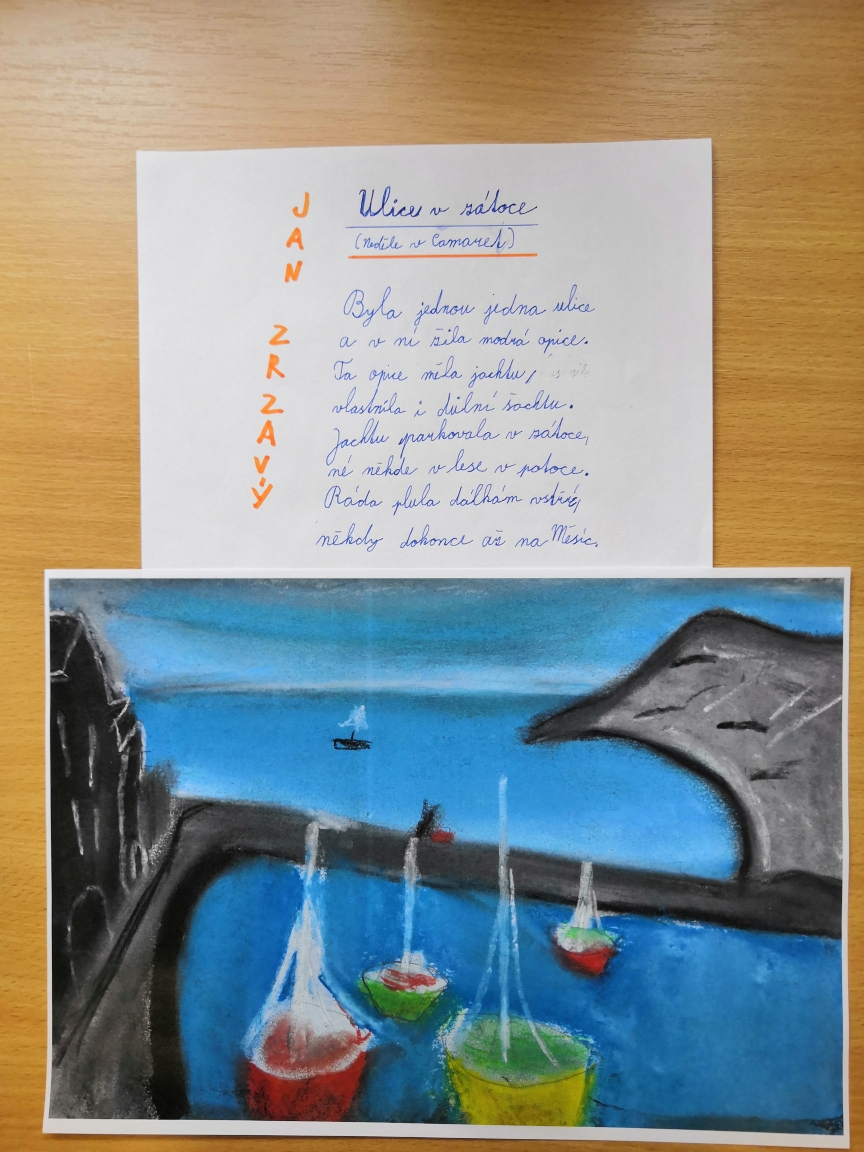 JAN ZRZAVÝ
Ulice v zátoce
(Neděle v Camaret)
Byla jednou jedna ulice
a v ní žila modrá opice.
Ta opice měla jachtu,
vlastnila i důlní šachtu.
Jachtu parkovala v zátoce,
né někde v lese v potoce.
Ráda plula dálkám vstříc,
někdy dokonce až na Měsíc.